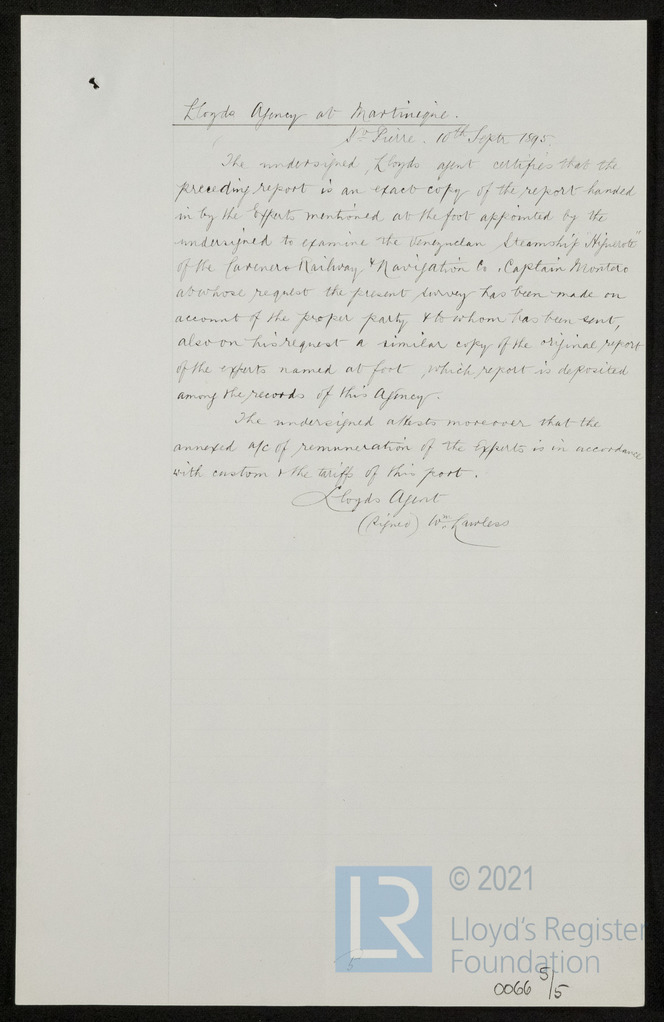 Lloyds Agency at Martinique.
St. Pierre. 10th Septr 1895.
The undersigned, Lloyds agent certifies that the
preceding report is an exact copy of the report handed
in by the Experts mentioned at the foot appointed by the
undersigned to examine the Venezuelan Steamship "Higuerote"
of the Carenero Railway & Navigation Co. Captain Montero
at whose request the present survey has been made on
account of the proper party & to whom has been sent,
also on his request a similar copy of the original report
of the experts named at foot, which report is deposited
among the records of this Agency.
The undersigned attests moreover that the
annexed a/c of remuneration of the Experts is in accordance
with custom & the tariff of this port.
Lloyds Agent
(signed) Wm Lawless
LR
© 2021
Lloyd's Register
Foundation
5
0066 5/5